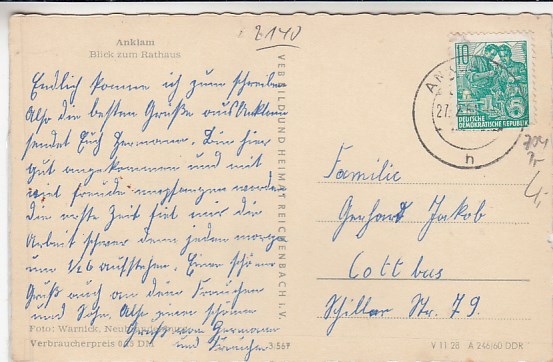 2140
Anklam
Blick zum Rathaus
Endlich komme ich zum schreiben
Also die besten Grüße aus Anklam
sendet Euch Hermann. Bin hier
gut angekommen und mit
viel Freude empfangen worden
Die erste Zeit fiel mir die
Arbeit schwer denn jeden morgen
um 1/2 6 aufstehen. Einen schönen
Gruß auch an dein Frauchen
und Sohn. Also einen schönen
Gruß von Hermann
und Frauchen
Foto: Warnick, Neubrandenburg
Verbraucherpreis 0,15 DM
3/567
VEB BILD UND HEIMAT REICHENBACH I. V.
10
DEUTSCHE
DEMOKRATISCHE REPUBLIK
h
Familie
Gerhard Jakob
Cottbus
Schiller Str. 79.
V 11 28 A 246/60 DDR